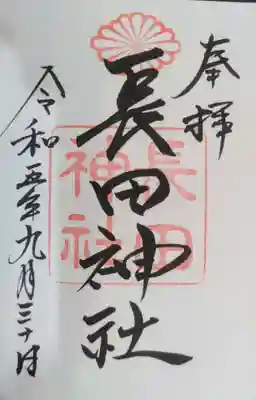 奉拝
長田神社
長田神社
令和五年九月三十日